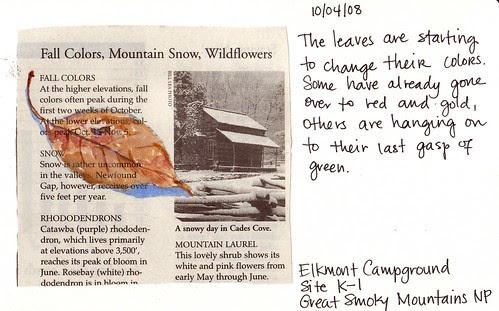 10/04/08
The leaves are starting
to change their colors.
Some have already gone
over to red and gold,
others are hanging on
to their last gasp of
green.
Elkmont Campground
Site K-1
Great Smoky Mountains NP
Fall Colors, Mountain Snow, Wildflowers
FALL COLORS
At the higher elevations, fall
colors often peak during the
first two weeks of October.
At the lower elevations, col-
ors peak Oct. Nov. 5.
SNOW
Snow is rather uncommon
in the valleys. Newfound
Gap, however, receives over
five feet per year.
RHODODENDRONS
Catawba (purple) rhododen-
dron, which lives primarily
at elevations above 3,500',
reaches its peak of bloom in
June. Rosebay (white) rho-
dodendron is in bloom in
BILL LEA PHOTO
A snowy day in Cades Cove.
MOUNTAIN LAUREL
This lovely shrub shows its
white and pink flowers from
early May through June.